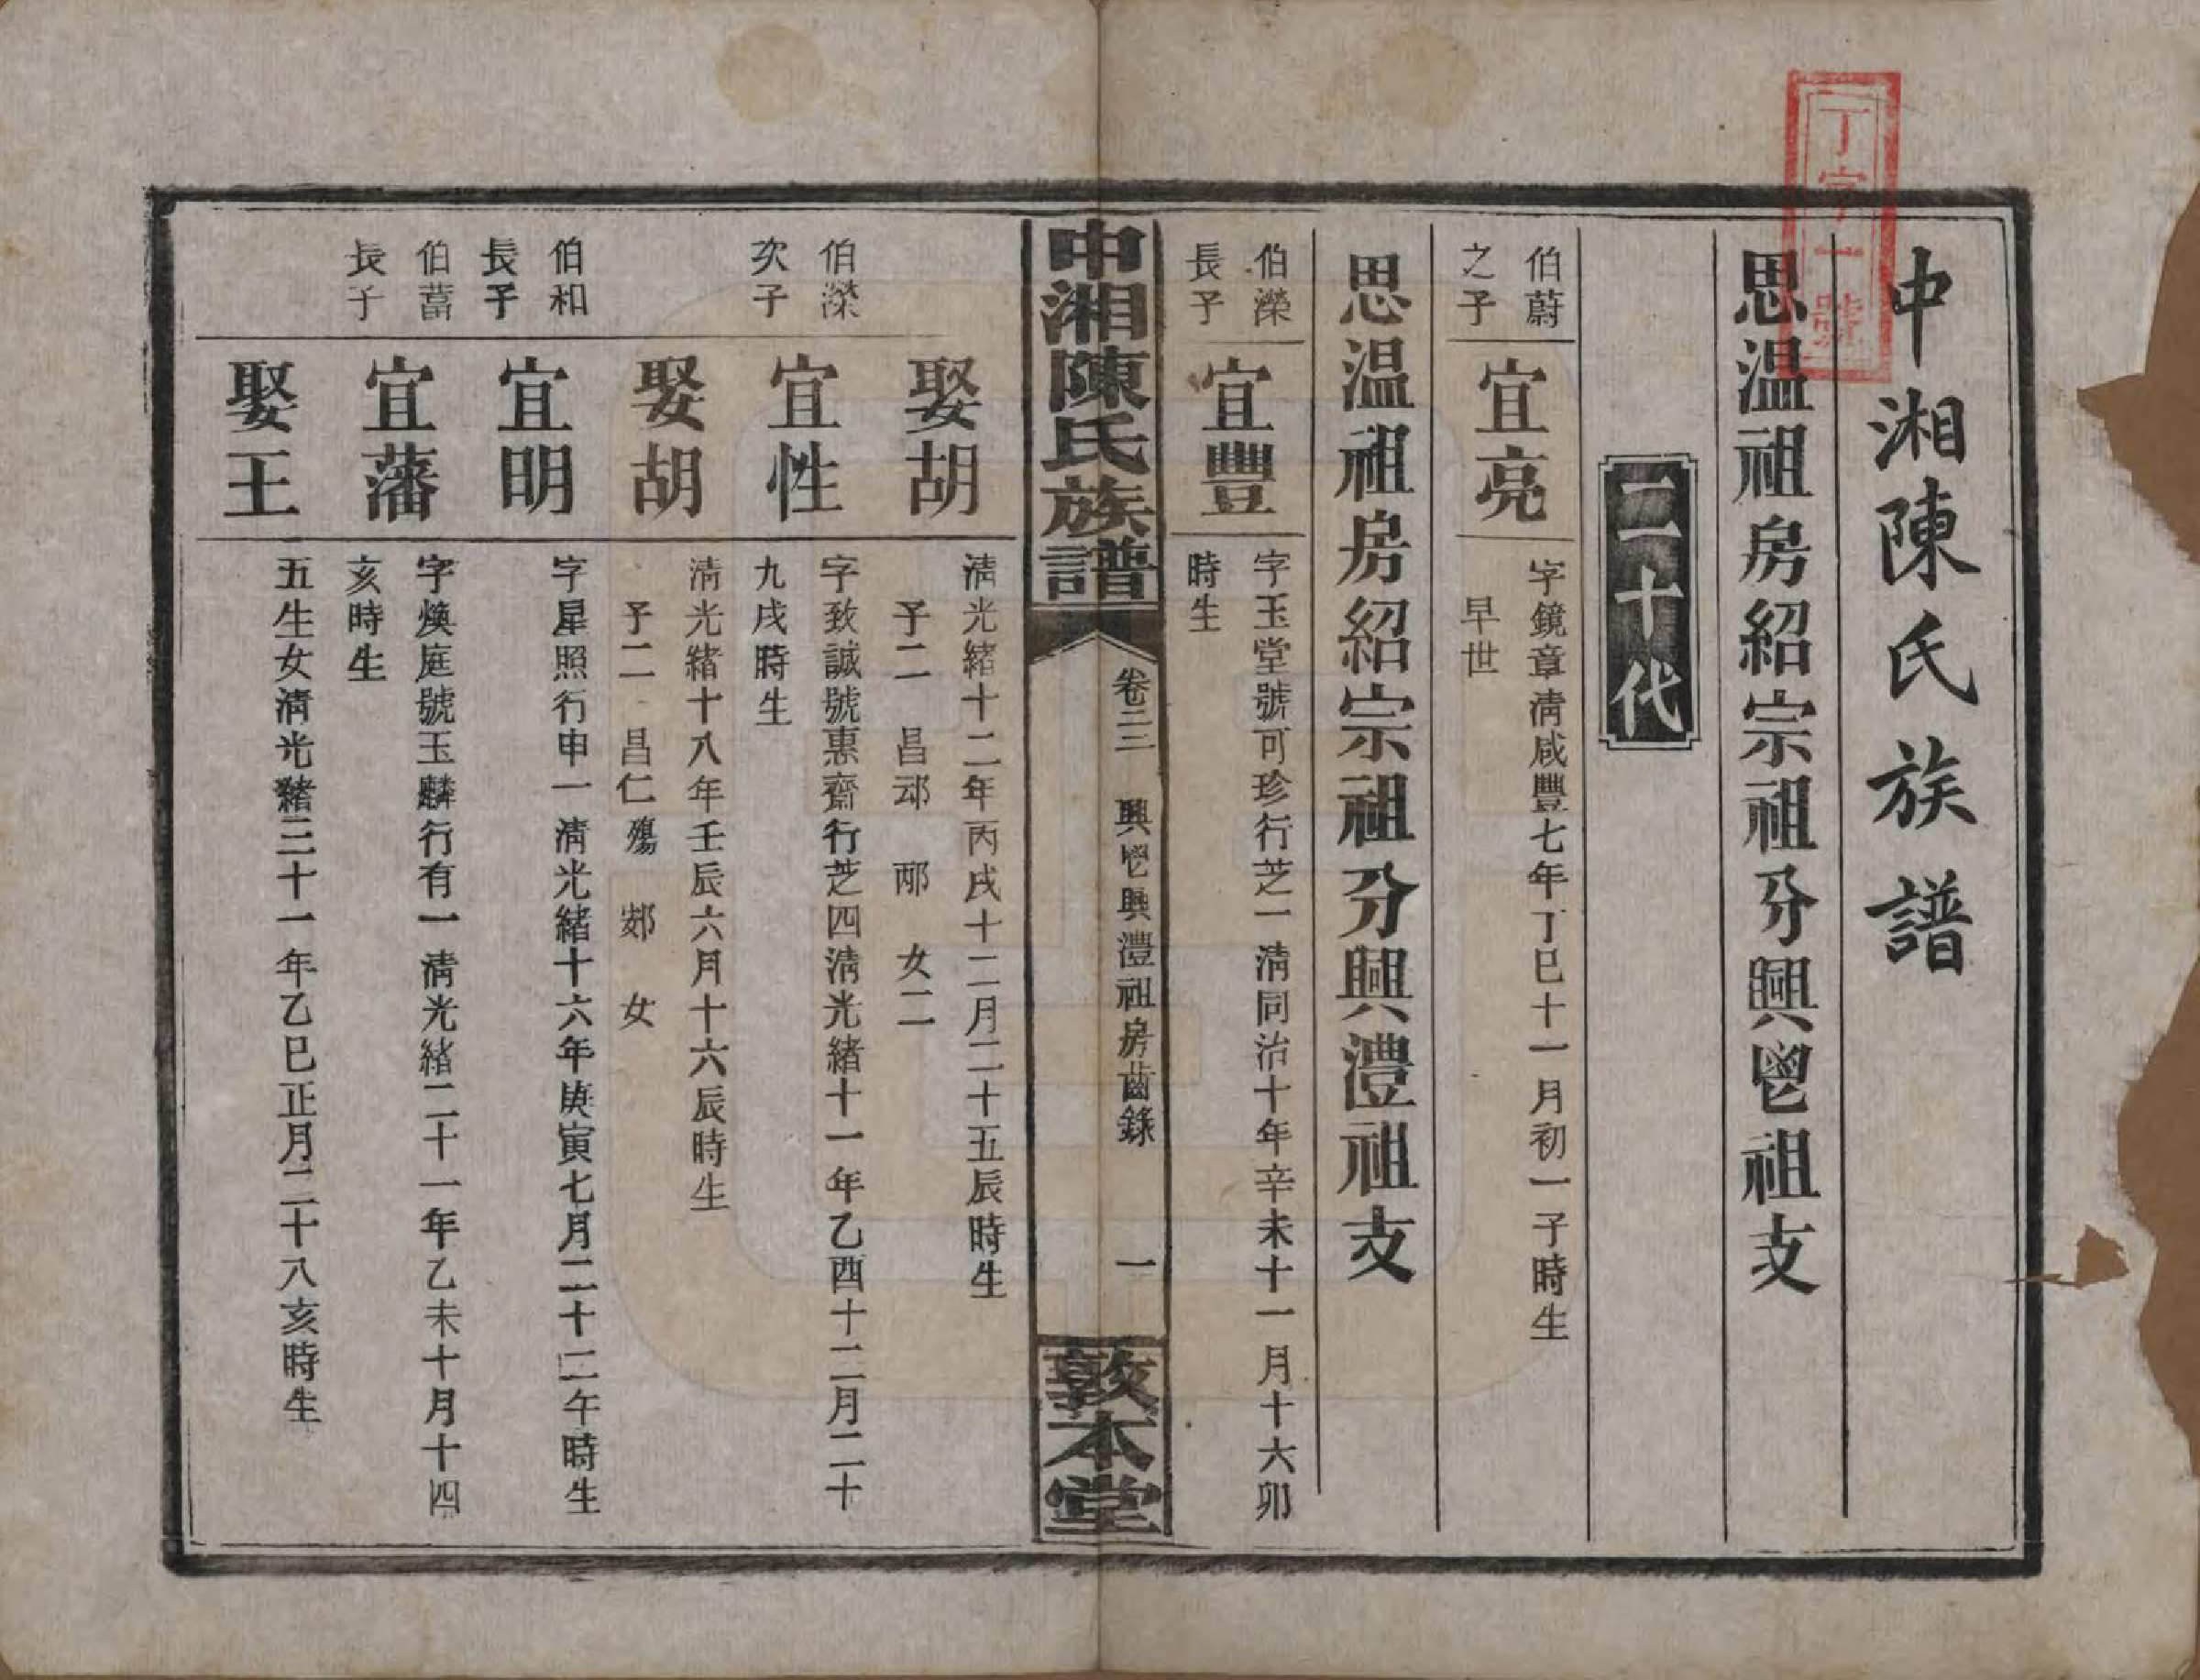 丁字一號
中湘陳氏族譜
思温祖房紹宗祖分興鬯祖支
二十代
伯蔚
之子
宜亮
字鏡章清咸豐七年丁巳十一月初一子時生
早世
思温祖房紹宗祖分興澧祖支
伯濚
長子
宜豐
字玉堂號可珍行芝一清同治十年辛未十一月十六卯
時生
中湘陳氏族譜
卷三三 興鬯興澧祖房齒錄 一
敦本堂
娶胡
清光緒十二年丙戌十二月二十五辰時生
子二 昌䢼 邴 女二
伯濚
次子
宜性
字致誠號惠齋行芝四清光緒十一年乙酉十二月二十
九戌時生
娶胡
清光緒十八年壬辰六月十六辰時生
子二 昌仁殤 郯 女
伯和
長子
宜明
字星照行申一清光緒十六年庚寅七月二十二午時生
伯蓄
長子
宜藩
字煥庭號玉麟行有一清光緒二十一年乙未十月十四
亥時生
娶王
五生女清光緒三十一年乙巳正月二十八亥時生